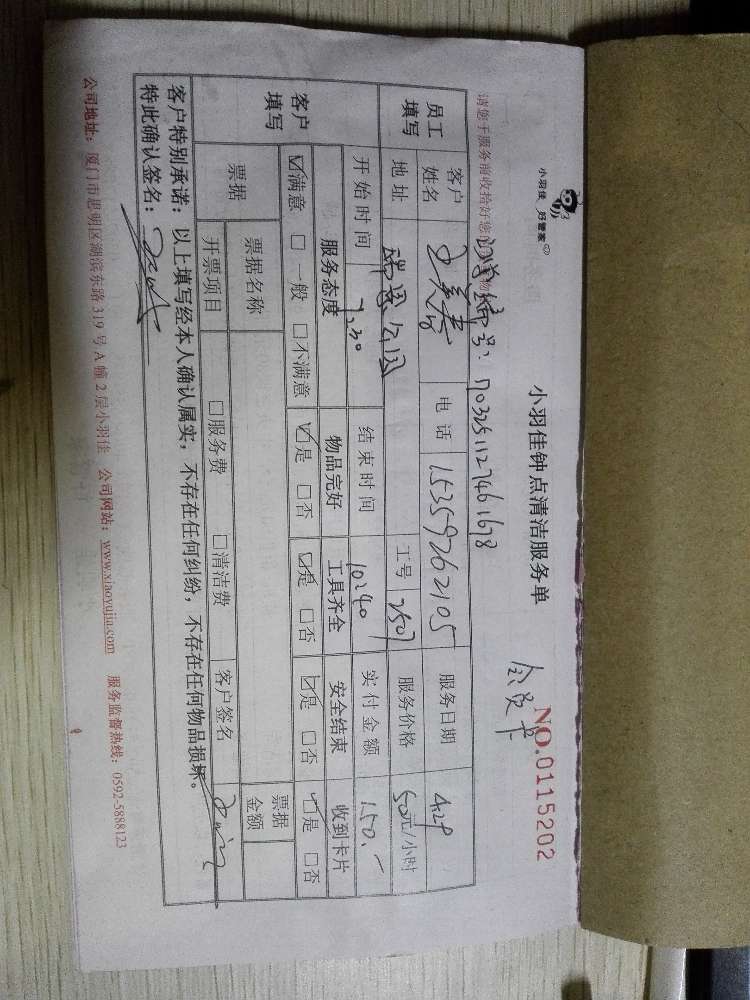 小羽佳 好管家
小羽佳钟点清洁服务单
会员卡
NO.0115202
订单编号: D03251127461678
请您于服务前收拾好您的 物
员工填写 客户姓名 电话 15359262105 服务日期 4.29
地址 瑞景公园 工号 2507 服务价格 50元/小时
客户填写 开始时间 7:30 结束时间 10:40 实付金额 150.-
服务态度 物品完好 工具齐全 安全结束 收到卡片
☑满意 □一般 □不满意 ☑是 □否 ☑是 □否 ☑是 □否 ☑是 □否
票据 票据名称 票据金额
开票项目 □服务费 □清洁费 客户签名
客户特别承诺：以上填写经本人确认属实，不存在任何纠纷，不存在任何物品损坏。
特此确认签名：
公司地址：厦门市思明区湖滨东路319号A幢2层小羽佳 公司网站：www.xiaoyujia.com 服务监督热线：0592-5888123